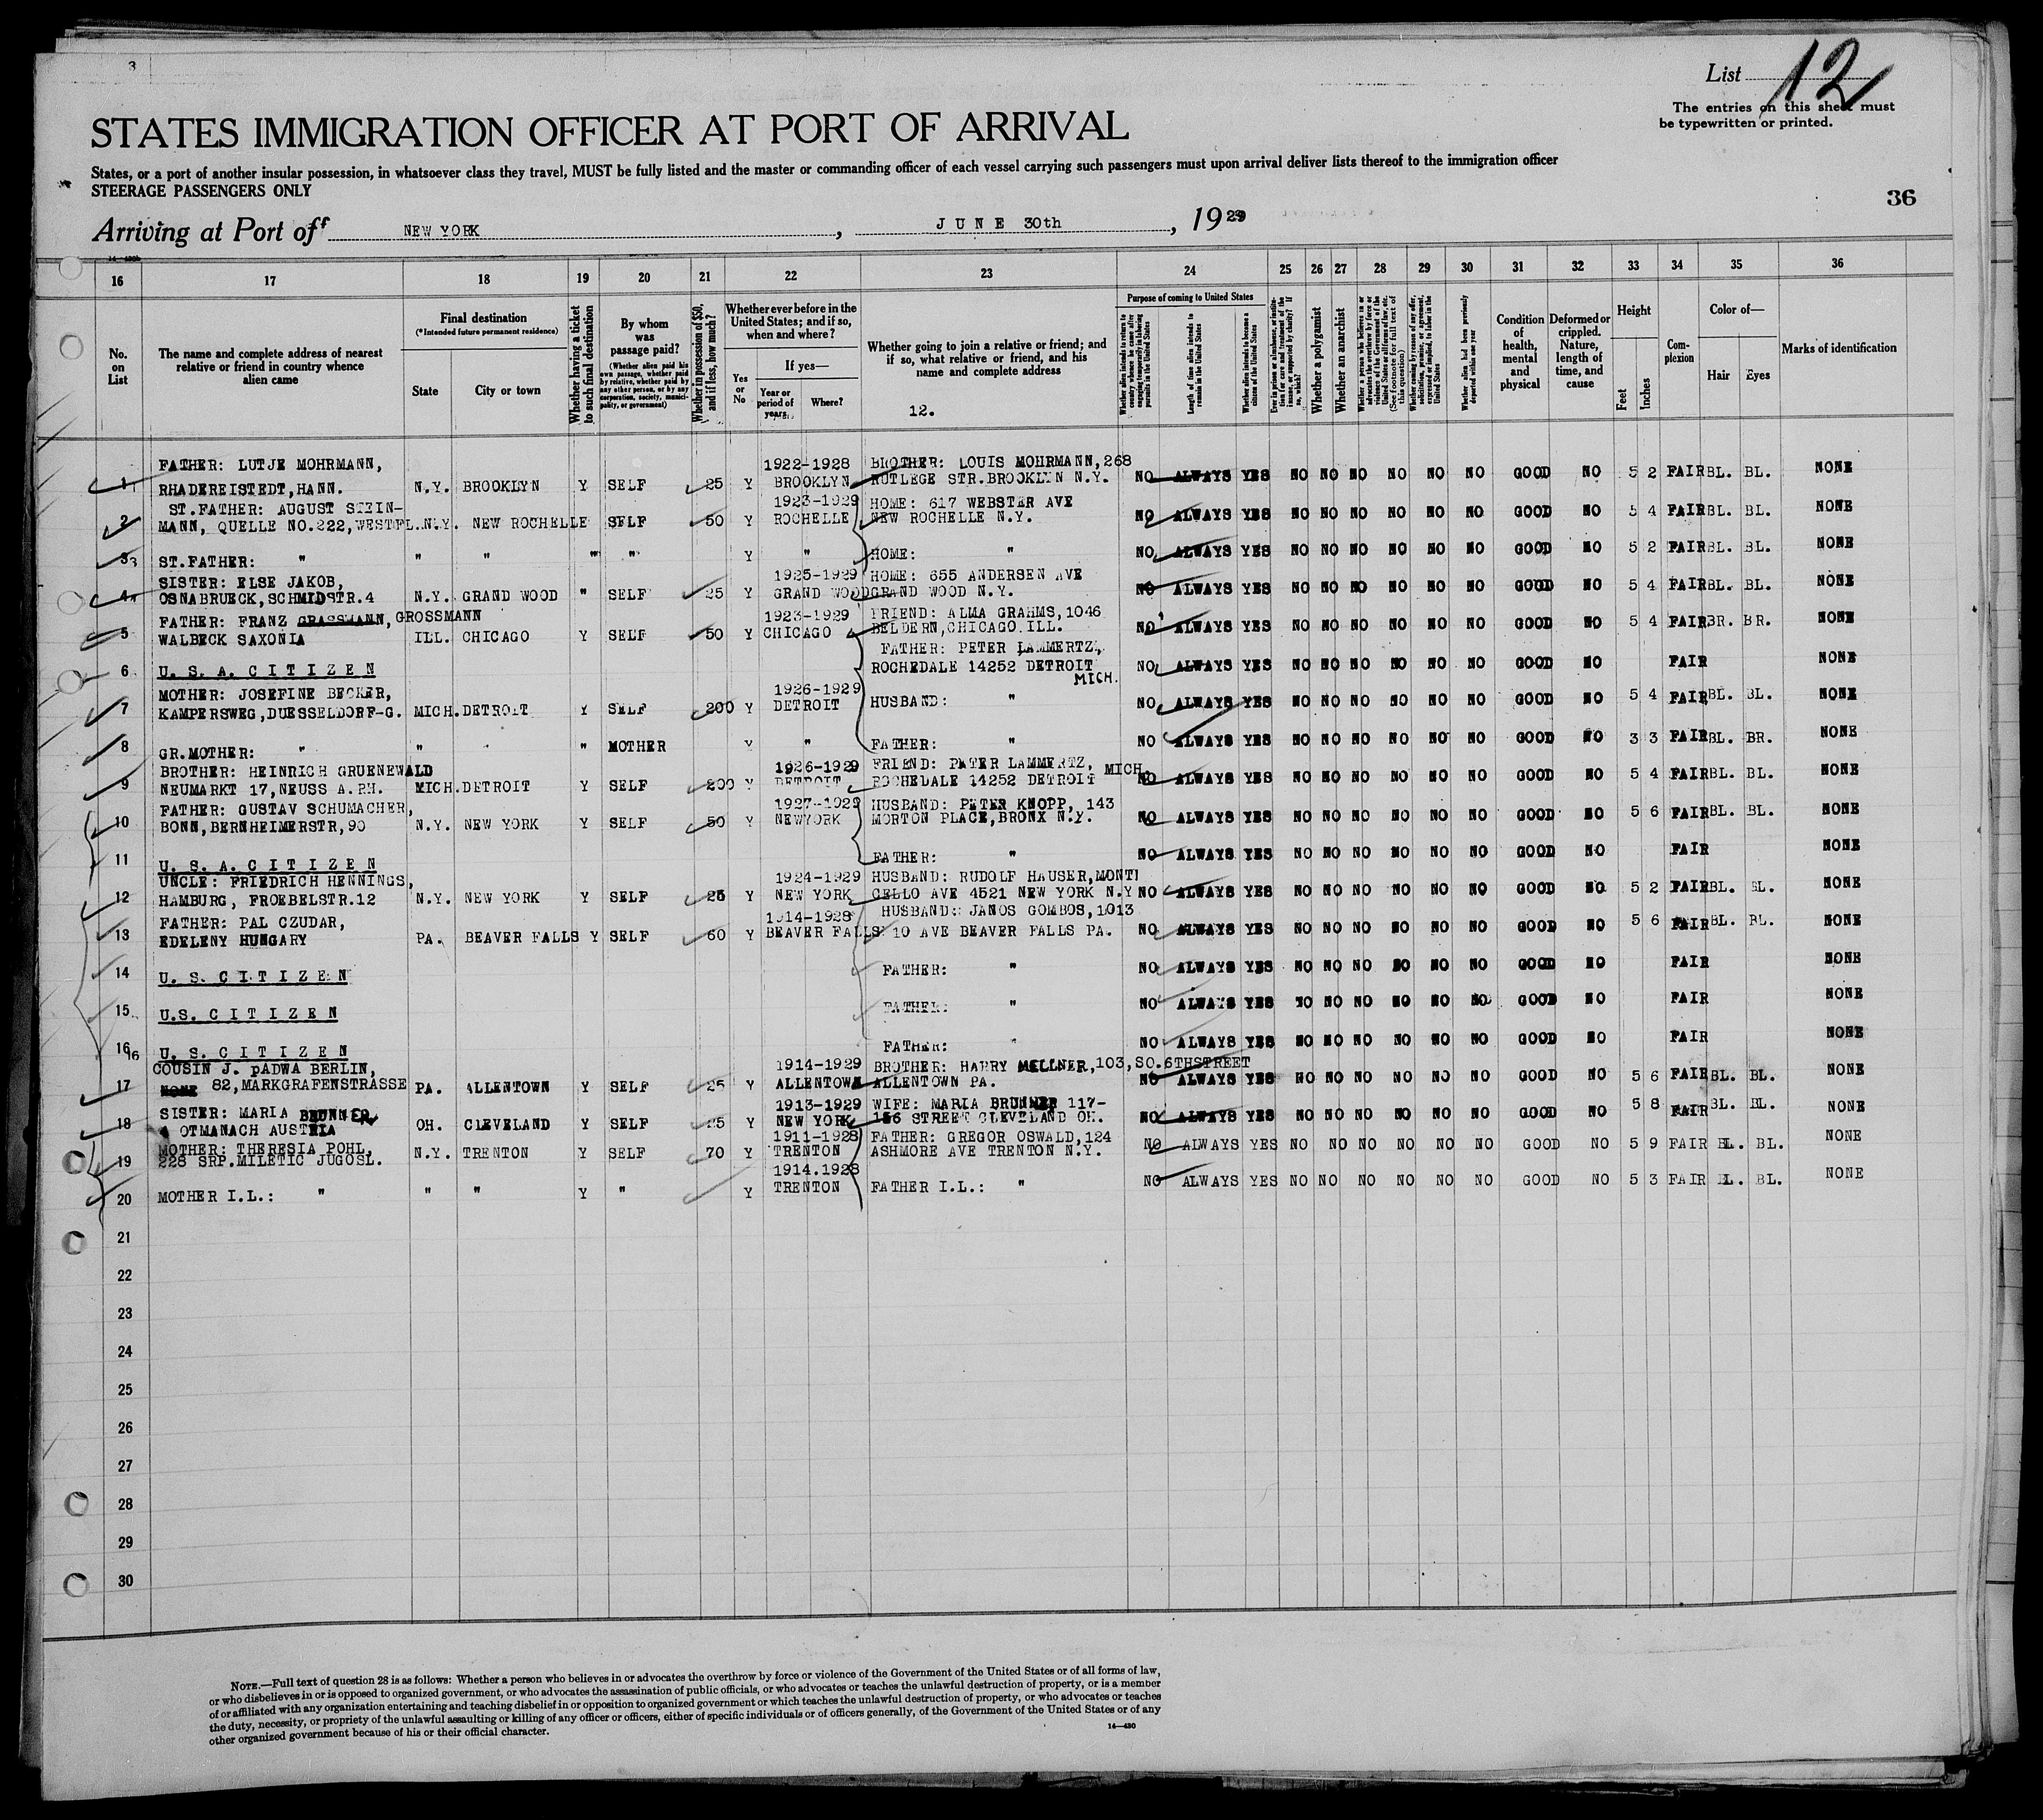 3
List 12
The entries on this sheet must
be typewritten or printed.
STATES IMMIGRATION OFFICER AT PORT OF ARRIVAL
States, or a port of another insular possession, in whatsoever class they travel, MUST be fully listed and the master or commanding officer of each vessel carrying such passengers must upon arrival deliver lists thereof to the immigration officer
STEERAGE PASSENGERS ONLY
36
Arriving at Port of NEW YORK, JUNE 30th, 1929
16 17 18 19 20 21 22 23 24 25 26 27 28 29 30 31 32 33 34 35 36
No. on List
The name and complete address of nearest relative or friend in country whence alien came
Final destination
(*Intended future permanent residence)
State
City or town
Whether having a ticket to such final destination
By whom was passage paid?
(Whether alien paid his own passage, whether paid by relative, whether paid by any other person, or by any corporation, society, municipality, or government)
Whether in possession of $50, and if less, how much?
Whether ever before in the United States; and if so, when and where?
Yes or No
If yes—
Year or period of years
Where?
Whether going to join a relative or friend; and if so, what relative or friend, and his name and complete address
12.
Purpose of coming to United States
Whether alien intends to return to country whence he came after engaging temporarily in laboring pursuits in the United States
Length of time alien intends to remain in the United States
Whether alien intends to become a citizen of the United States
Whether a polygamist
Whether an anarchist
Condition of health, mental and physical
Deformed or crippled. Nature, length of time, and cause
Height
Feet
Inches
Complexion
Color of—
Hair
Eyes
Marks of identification
FATHER: LUTJE MOHRMANN, 1922-1928 BROTHER: LOUIS MOHRMANN, 268
1 RHADEREISTEDT, HANN. N.Y. BROOKLYN Y SELF 25 Y BROOKLYN RUTLEGE STR. BROOKLYN N.Y. NO ALWAYS YES NO NO NO NO NO NO GOOD NO 5 2 FAIR BL. BL. NONE
ST.FATHER: AUGUST STEIN- 1923-1929 HOME: 617 WEBSTER AVE
2 MANN, QUELLE NO.222, WESTFL. N.Y. NEW ROCHELLE SELF 50 Y ROCHELLE NEW ROCHELLE N.Y. NO ALWAYS YES NO NO NO NO NO NO GOOD NO 5 4 FAIR BL. BL. NONE
3 ST.FATHER: " " " " " Y " HOME: " NO ALWAYS YES NO NO NO NO NO NO GOOD NO 5 2 FAIR BL. BL. NONE
SISTER: ELSE JAKOB, 1925-1929 HOME: 655 ANDERSEN AVE
4 OSNABRUECK, SCHMIDSTR.4 N.Y. GRAND WOOD " SELF 25 Y GRAND WOOD GRAND WOOD N.Y. NO ALWAYS YES NO NO NO NO NO NO GOOD NO 5 4 FAIR BL. BL. NONE
FATHER: FRANZ GRASSMANN, GROSSMANN 1923-1929 FRIEND: ALMA GRAHMS, 1046
5 WALBECK SAXONIA ILL. CHICAGO Y SELF 50 Y CHICAGO BELDERN, CHICAGO ILL. NO ALWAYS YES NO NO NO NO NO NO GOOD NO 5 4 FAIR BR. BR. NONE
FATHER: PETER LAMMERTZ,
6 U. S. A. CITIZEN ROCHEDALE 14252 DETROIT MICH. NO ALWAYS YES NO NO NO NO NO NO GOOD NO FAIR NONE
MOTHER: JOSEFINE BECKER, 1926-1929
7 KAMPERSWEG, DUESSELDORF-G. MICH. DETROIT Y SELF 200 Y DETROIT HUSBAND: " NO ALWAYS YES NO NO NO NO NO NO GOOD NO 5 4 FAIR BL. BL. NONE
8 GR.MOTHER: " " " " MOTHER Y " FATHER: " NO ALWAYS YES NO NO NO NO NO NO GOOD NO 3 3 FAIR BL. BR. NONE
BROTHER: HEINRICH GRUENEWALD 1926-1929 FRIEND: PETER LAMMERTZ, MICH.
9 NEUMARKT 17, NEUSS A.RH. MICH. DETROIT Y SELF 200 Y DETROIT ROCHEDALE 14252 DETROIT NO ALWAYS YES NO NO NO NO NO NO GOOD NO 5 4 FAIR BL. BL. NONE
FATHER: GUSTAV SCHUMACHER, 1927-1929 HUSBAND: PETER KNOPP, 143
10 BONN, BERNHEIMERSTR, 90 N.Y. NEW YORK Y SELF 50 Y NEWYORK MORTON PLACE, BRONX N.Y. NO ALWAYS YES NO NO NO NO NO NO GOOD NO 5 6 FAIR BL. BL. NONE
11 U. S. A. CITIZEN FATHER: " NO ALWAYS YES NO NO NO NO NO NO GOOD NO FAIR NONE
UNCLE: FRIEDRICH HENNINGS, 1924-1929 HUSBAND: RUDOLF HAUSER, MONTI
12 HAMBURG, FROEBELSTR.12 N.Y. NEW YORK Y SELF 25 Y NEW YORK CELLO AVE 4521 NEW YORK N.Y NO ALWAYS YES NO NO NO NO NO NO GOOD NO 5 2 FAIR BL. BL. NONE
FATHER: PAL CZUDAR, 1914-1928 HUSBAND: JANOS GOMBOS, 1013
13 EDELENY HUNGARY PA. BEAVER FALLS Y SELF 60 Y BEAVER FALLS 10 AVE BEAVER FALLS PA. NO ALWAYS YES NO NO NO NO NO NO GOOD NO 5 6 FAIR BL. BL. NONE
14 U. S. CITIZEN FATHER: " NO ALWAYS YES NO NO NO NO NO NO GOOD NO FAIR NONE
15 U.S. CITIZEN FATHER: " NO ALWAYS YES NO NO NO NO NO NO GOOD NO FAIR NONE
16 U. S. CITIZEN FATHER: " NO ALWAYS YES NO NO NO NO NO NO GOOD NO FAIR NONE
COUSIN J. PADWA BERLIN, 1914-1929 BROTHER: HARRY MELLNER, 103, SO.6THSTREET
17 82, MARKGRAFENSTRASSE PA. ALLENTOWN Y SELF 25 Y ALLENTOWN ALLENTOWN PA. NO ALWAYS YES NO NO NO NO NO NO GOOD NO 5 6 FAIR BL. BL. NONE
SISTER: MARIA BRUNNER 1913-1929 WIFE: MARIA BRUNNER 117-
18 OTMANACH AUSTRIA OH. CLEVELAND Y SELF 25 Y NEW YORK STREET CLEVELAND OH. NO ALWAYS YES NO NO NO NO NO NO GOOD NO 5 8 FAIR BL. BL. NONE
MOTHER: THERESIA POHL, 1911-1928 FATHER: GREGOR OSWALD, 124
19 228 SRP.MILETIC JUGOSL. N.Y. TRENTON Y SELF 70 Y TRENTON ASHMORE AVE TRENTON N.Y. NO ALWAYS YES NO NO NO NO NO NO GOOD NO 5 9 FAIR BL. BL. NONE
1914.1928
20 MOTHER I.L.: " " " Y " Y TRENTON FATHER I.L.: " NO ALWAYS YES NO NO NO NO NO NO GOOD NO 5 3 FAIR BL. BL. NONE
21
22
23
24
25
26
27
28
29
30
NOTE.—Full text of question 28 is as follows: Whether a person who believes in or advocates the overthrow by force or violence of the Government of the United States or of all forms of law,
or who disbelieves in or is opposed to organized government, or who advocates the assassination of public officials, or who advocates or teaches the unlawful destruction of property, or is a member
of or affiliated with any organization entertaining and teaching disbelief in or opposition to organized government or which teaches the unlawful destruction of property, or who advocates or teaches
the duty, necessity, or propriety of the unlawful assaulting or killing of any officer or officers, either of specific individuals or of officers generally, of the Government of the United States or of any
other organized government because of his or their official character.
14—430